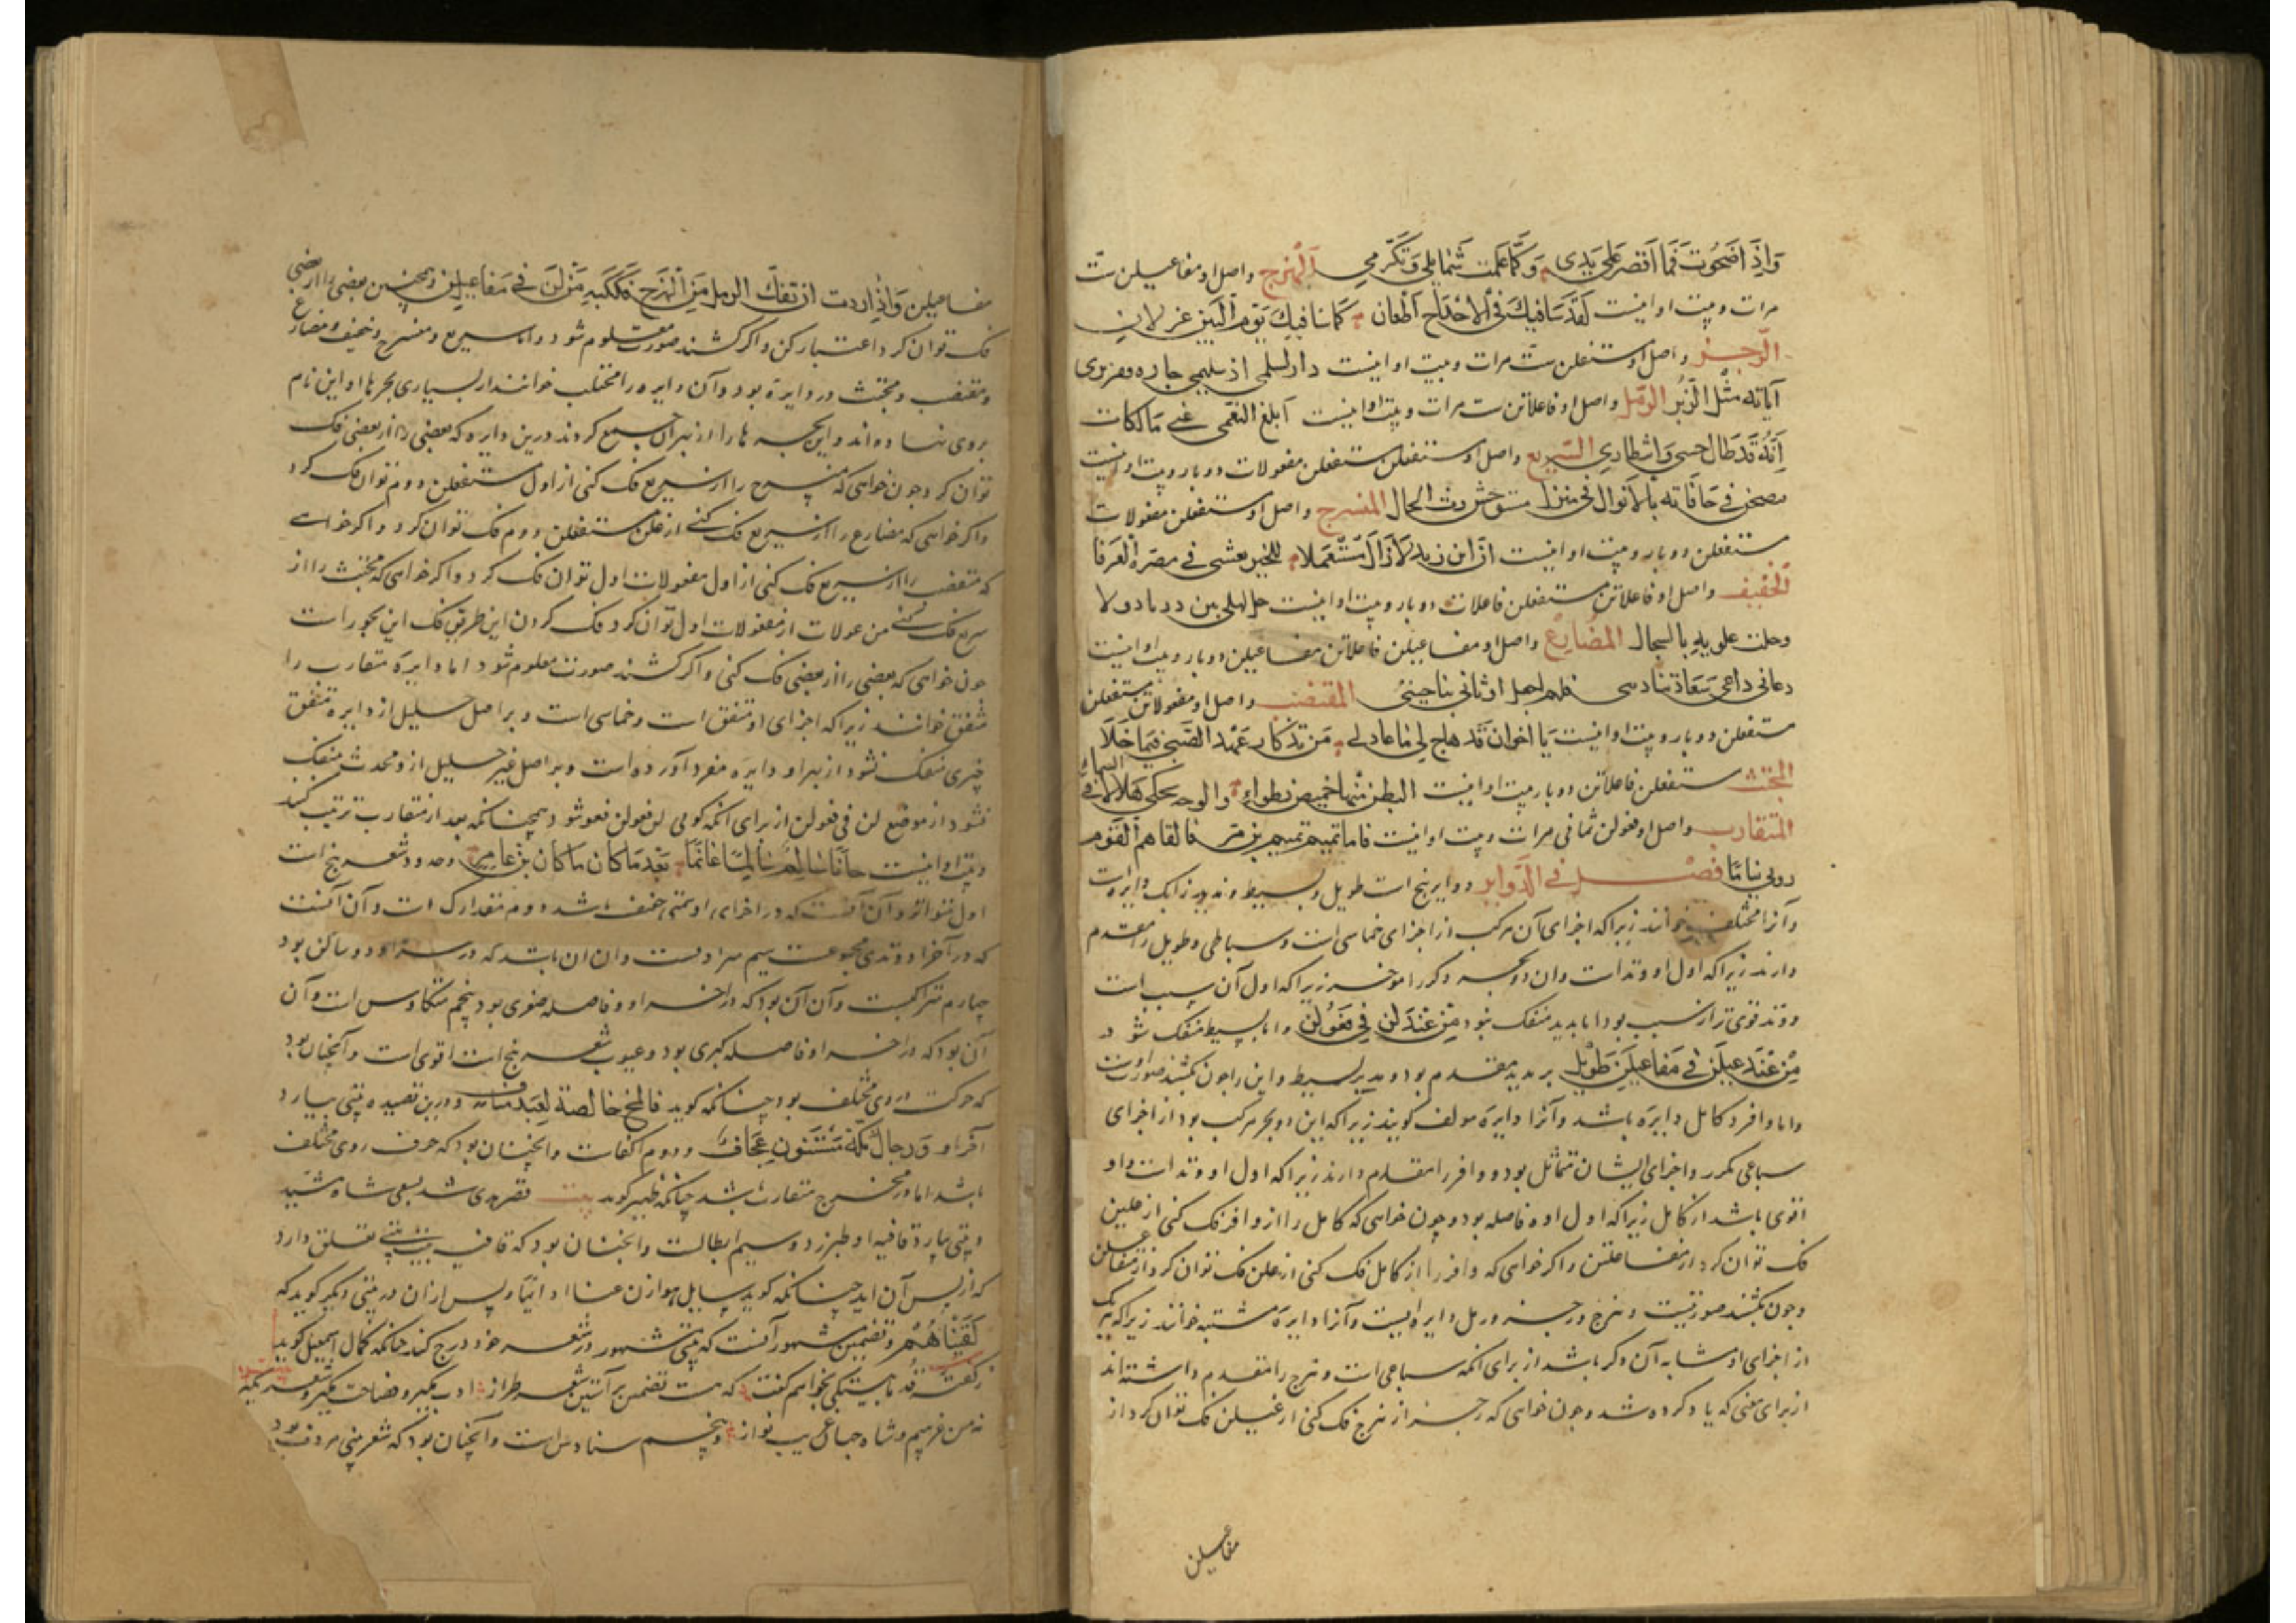 وَاِذَا صَحَوْتُ فَمَا اُقَصِّرُ عَلَى يَدِى وَكَمَا عَلِمْتِ شَمَايِلِى وَتَكَرُّمِى الهَزَج واصل او مفاعیلن ستّ
مرات و بیت او اینست لَقَدْ شَاقَتْكَ فِى الاَحْدَاجِ اَظْعَان كَمَا شَاقَتْكَ يَوْمَ الْبَيْنِ غِرْبَان
الرَّجَز واصل او مستفعلن ستّ مرات و بیت او اینست دار لسلمى اذ سليمى جاره قفر ترى
آیاته مثل الزُّبُر الرمل واصل او فاعلاتن ست مرات و بیت او اینست ابلغ النعمى عنى مالكات
اَنَّهُ قَد طال حبسى وَانتظارى السّريع واصل او مستفعلن مستفعلن مفعولات دو بار و بیت او اینست
فى حافاته بالابوال فى منزل مستوحش رث الحال المنسرح واصل او مستفعلن مفعولات
مستفعلن دو بار و بیت او اینست انّ ابن زيد لازال مستعملا للخير يفشى فى مصره العرفا
الخفيف واصل او فاعلاتن مستفعلن فاعلات دو بار و بیت او اینست حل اهلى بين درنا دولا
وحلت علويه بالسجال المضارع واصل او مفاعیلن فاعلاتن مفاعیلن دو بار و بیت او اینست
دعانى داعى سعاد تنادى المقتضب واصل او مفعولاتن مستفعلن
مستفعلن دو بار و بیت او اینست يا اخوان قد هاج لى ما عادلى من تذكار عهد الصبى فيما خلا
المجتث مستفعلن فاعلاتن دو بار بیت او اینست البطن منها خميص والوجه يحكى هلالا فى السماء
المتقارب واصل او فعولن ثمانی مرات و بیت او اینست فاما تميم تميم بن مر فالفاهم القوم
روبى نياما فصل فى الدواير دوایر پنج است طویل و بسیط و مدید از یک دایره است
و آنرا مختلف خوانند زیرا که اجزای آن مرکب از اجزای خماسی است و سباعی و طویل را مقدم
دارند زیرا که اول او وتد است و آن دو بحر دیگر را مؤخر زیرا که اول آن سبب است
و وتد قوی تر از سبب بود اما مدید منفک بود مِنْ عِنْدِ لَنْ فِى فَعُولُن و اما بسیط منفک شود
مِنْ عِنْدِ عِيلُن فِى مَفَاعِيلُن طَوِيل بر مدید مقدم بود و مدید بر بسیط و این را چون بکشند صورت او
و اما وافر و کامل دایره باشد و آنرا دایره مولف گویند زیرا که این دو بحر مرکب بود از اجزای
سباعی مکرر و اجزای ایشان متماثل بود و وافر را مقدم دارند زیرا که اول او وتد است و او
اقوی باشد از کامل زیرا که اول او فاصله بود و چون خواهی که کامل را از وافر فک کنی از علتن
فک توان کرد از مفاعلتن و اگر خواهی که وافر را از کامل فک کنی از علن فک توان کرد از متفاعلن
و چون بکشند صورتیست و هزج و رجز و رمل دایره ایست و آنرا دایره مشتبه خوانند زیرا که هر یک
از اجزای او مشابه آن دیگر باشد از برای آنکه سباعی است و هزج را مقدم داشته اند
از برای معنی که یاد کرده شد و چون خواهی که رجز از هزج فک کنی از عیلن فک توان کرد از
مفاعیلن
مفاعیلن وَاِذَا اردت ان تفكّ الرمل مِن الهزج فَفُكَّهُ مِن لُن فى مَفاعيلن و همچنین بعضی را از بعضی
فک توان کرد اعتبار کن و اگر کشند صورت معلوم شود و اما سریع و منسرح و خفیف و مضارع
و مقتضب و مجتث در دایره بود و آن دایره را مختلب خوانند از بسیاری بحرها او این نام
بروی نهاده اند و این بحرها را از بهر آن جمع کردند درین دایره که بعضی را از بعضی فک
توان کرد و چون خواهی که منسرح را از سریع فک کنی از اول مستفعلن دوم توان فک کرد
و اگر خواهی که مضارع را از سریع فک کنی از علن مستفعلن دوم فک توان کرد و اگر خواهی
که مقتضب را از سریع فک کنی از اول مفعولات اول توان فک کرد و اگر خواهی که مجتث را از
سریع فک کنی من عولات از مفعولات اول توان کرد فک کردن این طریق فک این بحور است
چون خواهی که بعضی را از بعضی فک کنی و اگر کشند صورت معلوم شود اما دایره متقارب را
متفق خوانند زیرا که اجزای او متفق است و خماسی است و بر اصل خلیل از دایره متفق
چیزی منفک نشود از بهر او دایره مفرد آورده است و بر اصل غیر خلیل ازو محدث منفک
شود از موضع لن فی فعولن از برای آنکه گویی لن فعولن فعو شود همچنانکه بعد از متقارب ترتیب کنند
و بیت او اینست جَاءَنَا عَامِر سالِمًا غانِمًا بَعْدَ مَا كان ما كان من عَامِر و حدود شعر پنج است
اول متواتر و آن آنست که در اجزای او سببی خفیف باشد دوم متدارک است و آن آنست
که در آخر او وتدی مجموعست سیم مترادفست و آن آن باشد که در او دو ساکن بود
چهارم متراکبست و آن آن بود که در آخر او فاصله صغری بود پنجم متکاوس است و آن
آن بود که در آخر او فاصله کبری بود و عیوب شعر پنج است اقوی است و آنچنان بود
که حرکت روی مختلف بود چنانکه گوید فالمخ خالصة لعبد مناف و درین قصیده بیتی بیارد
آخر او وَرجالُ مكّة مُسْنِتُونَ عِجَافُ و دوم اکفاست و آنچنان بود که حرف روی مختلف
باشد اما در مخرج متقارب باشد چنانکه ظهیر گوید بیت
و بیتی بیارد قافیه او طبرزد و سیم ایطاست و آنچنان بود که قافیه بیتی تعلق دارد
که از پس آن آید چنانکه گوید و پس از آن در بیتی دیگر گوید که
لَقِينَاهُمْ و تضمین مشهور آنست که بیتی مشهور در شعر خود درج کند چنانکه کمال اسمعیل گوید
که هست تضمین بر آستین شعر طراز
نه من غریبم و شاه جهان غریب نواز و پنجم سناد است و آنچنان بود که شعر بیتی مردف بود